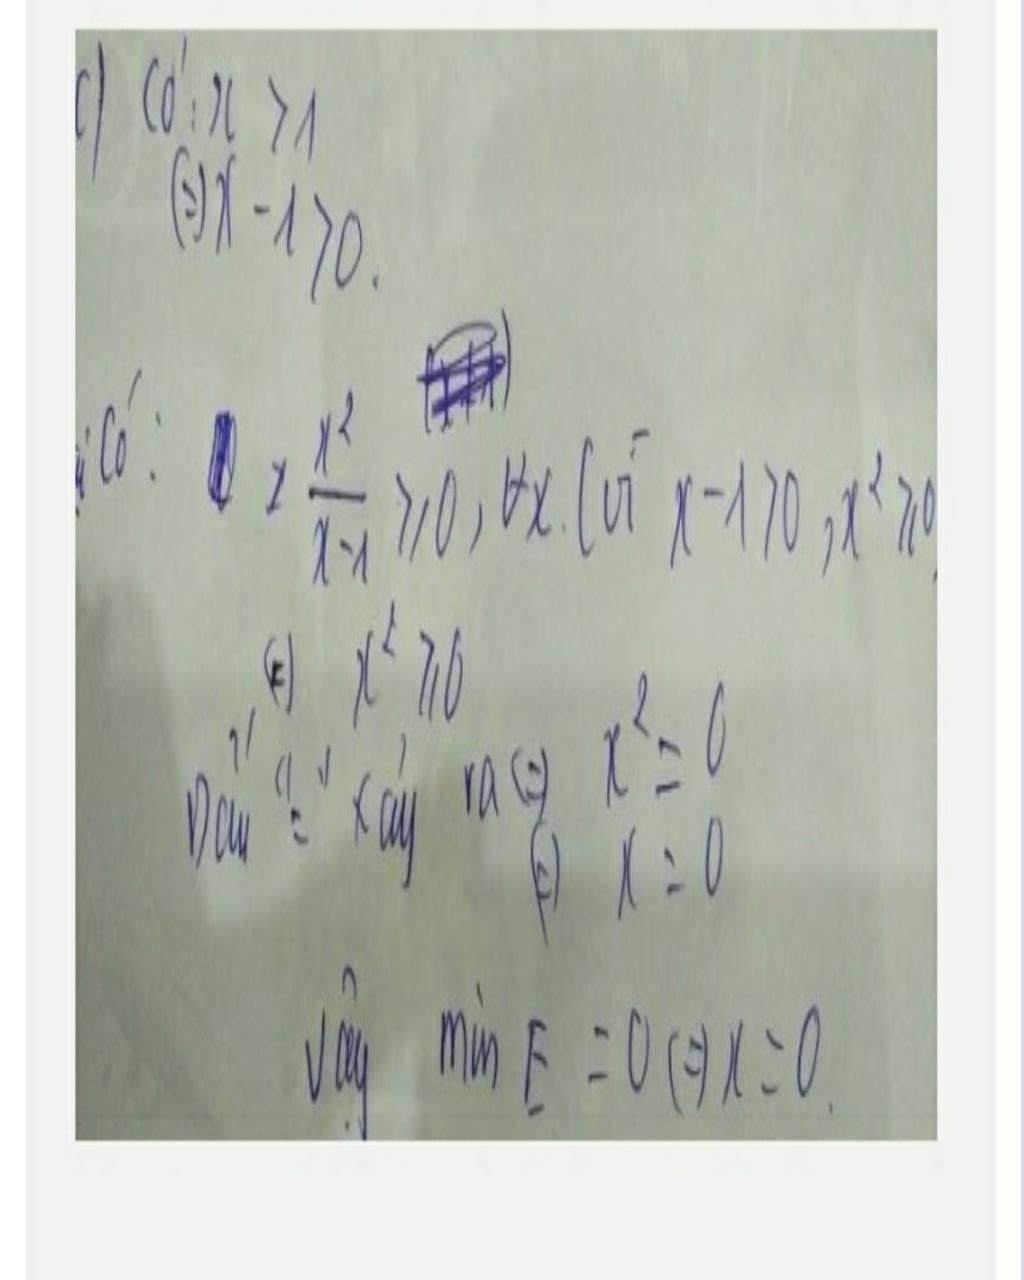 c) Có: x > 1
(=) x - 1 > 0.
Có: x²/(x-1) ⩾ 0, ∀x. (vì x-1 > 0, x² ⩾ 0
(=) x² ⩾ 0
Dấu "=" xảy ra (=) x² = 0
(=) x = 0
Vậy min E = 0 (=) x = 0.